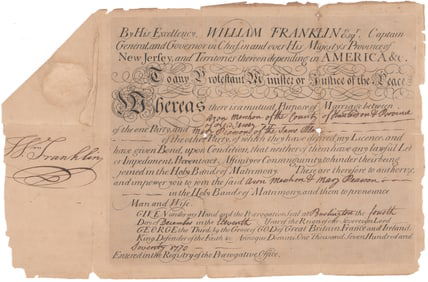 By His Excellency, WILLIAM FRANKLIN Esqr. Captain
General, and Governor in Chief, in and over His Majesty's Province of
New Jersey, and Territories thereon depending in AMERICA &c.
To any Protestant Minister or Justice of the Peace
Whereas there is a mutual Purpose of Marriage between
of the County of and Provind
of New Jersey
of the one Party, and of the Same Place
of the other Party, of which they have desired my Licence, and
have given Bond, upon Condition that neither of them have any lawful Let
or Impediment, Precontract, Affinity or Consanguinity to hinder their being
joined in the Holy Bands of Matrimony. These are therefore to authorize
and impower you to join the said & Mary
in the Holy Bands of Matrimony, and them to pronounce
Man and Wife.
GIVEN under my Hand and the Prerogative Seal at Burlington the fourth
Day of December in the Eleventh Year of the Reign of our Sovereign Lord
GEORGE the Third, by the Grace of GOD of Great Britain, France and Ireland,
King, Defender of the Faith &c. Annoque Domini, One Thousand, Seven Hundred and
Seventy 1770
Entered in the Registry of the Prerogative Office.
Wm Franklin